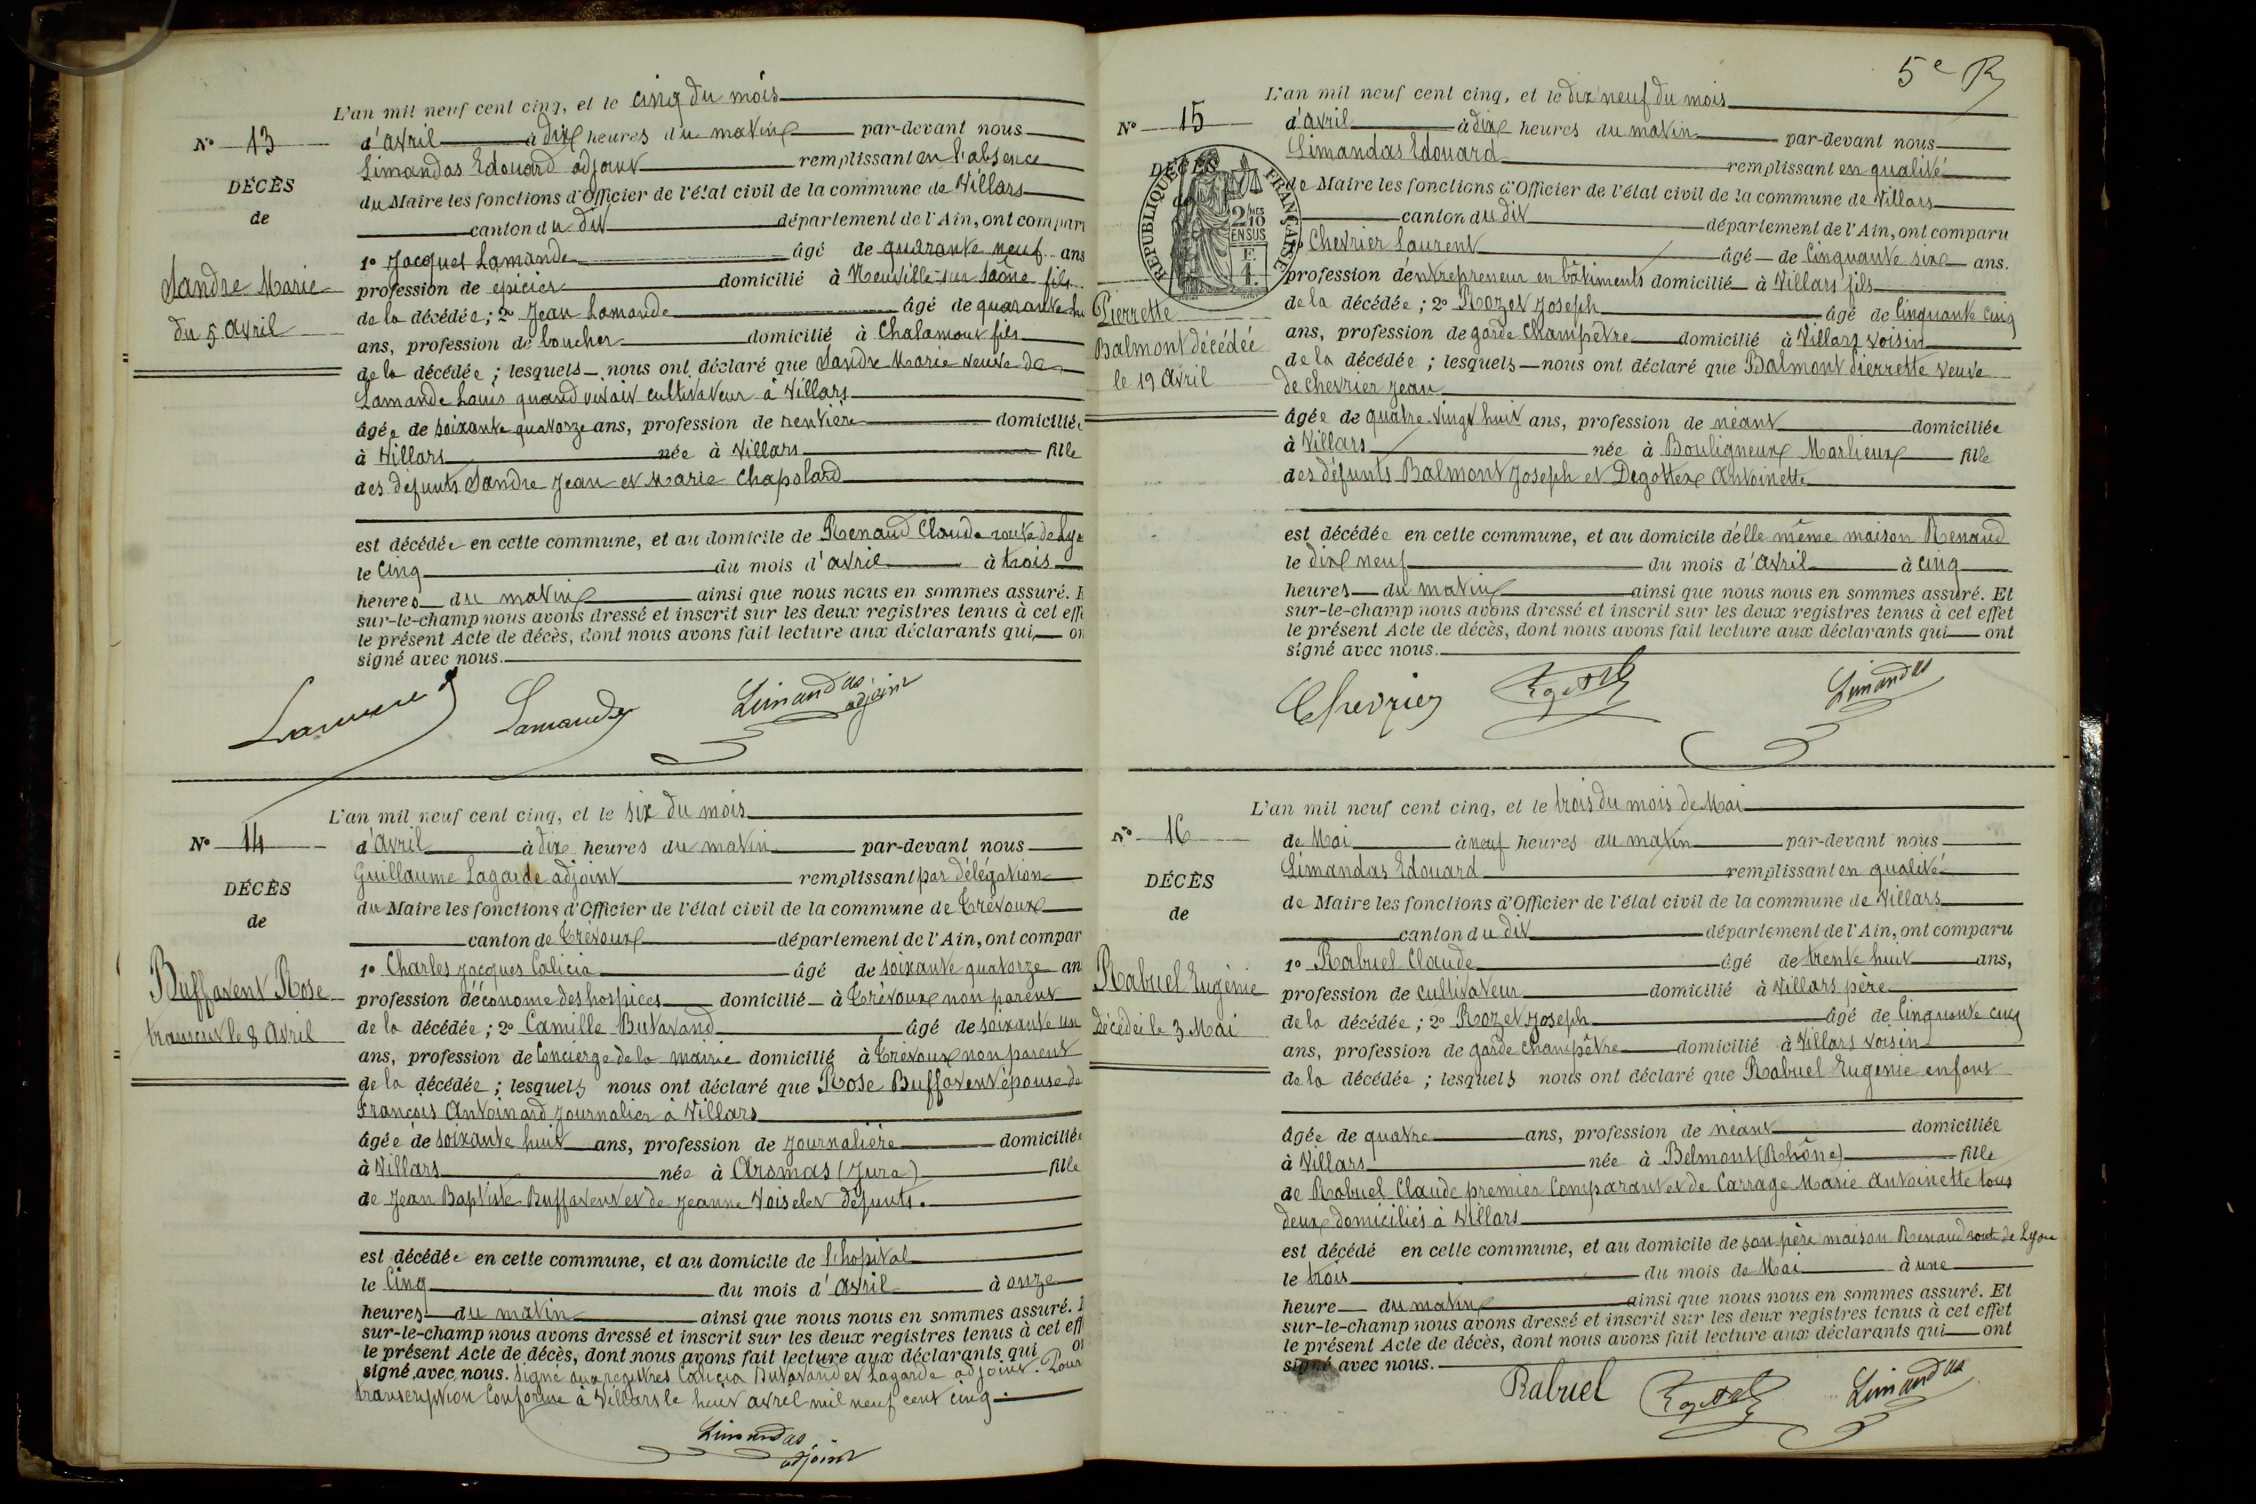 L'an mil neuf cent cinq, et le cinq du mois
N° 13
d'avril à dix heures du matin par-devant nous
Limandas Edouard adjoint remplissant en l'absence
DÉCÈS
du Maire les fonctions d'Officier de l'état civil de la commune de Villars
de
canton du dit département de l'Ain, ont compar
1° Jacques Lamande âgé de quarante neuf ans
Sandre Marie
profession de épicier domicilié à Neuville-sur Saône fils
de la décédée; 2° Jean Lamande âgé de quarante
du 5 avril
ans, profession de boucher domicilié à Chalamont fils
de la décédée; lesquels nous ont déclaré que Sandre Marie veuve de
Lamande Louis quand vivait cultivateur à Villars
âgée de soixante quatorze ans, profession de rentière domiciliée
à Villars née à Villars fille
des défunts Sandre Jean et Marie Chapolard
est décédée en cette commune, et au domicile de Renaud Claude route de Lyo
le cinq du mois d'avril à trois
heures du matin ainsi que nous nous en sommes assuré. E
sur-le-champ nous avons dressé et inscrit sur les deux registres tenus à cet effe
le présent Acte de décès, dont nous avons fait lecture aux déclarants qui on
signé avec nous.
Lamande Lamande Limandas
adjoint
L'an mil neuf cent cinq, et le six du mois
N° 14
d'avril à dix heures du matin par-devant nous
Guillaume Lagarde adjoint remplissant par délégation
DÉCÈS
du Maire les fonctions d'Officier de l'état civil de la commune de Trévoux
de
canton de Trévoux département de l'Ain, ont compar
1° Charles Jacques Calicia âgé de soixante quatorze an
Buffavent Rose
profession d'économe des hospices domicilié à Trévoux non parent
de la décédée; 2° Camille Butavand âgé de soixante un
transcrit le 8 Avril
ans, profession de Concierge de la mairie domicilié à Trévoux non parent
de la décédée; lesquels nous ont déclaré que Rose Buffavent épouse de
François Antoinard journalier à Villars
âgée de soixante huit ans, profession de journalière domiciliée
à Villars née à Aromas (Jura) fille
de Jean Baptiste Buffavent et de Jeanne Voiselet défunts.
est décédée en cette commune, et au domicile de l'hopital
le Cinq du mois d'avril à onze
heures du matin ainsi que nous nous en sommes assuré. E
sur-le-champ nous avons dressé et inscrit sur les deux registres tenus à cet eff
le présent Acte de décès, dont nous avons fait lecture aux déclarants qui on
signé avec nous. Signé aux registres Calicia Butavand et Lagarde adjoint. Pour
transcription Conforme à Villars le huit avril mil neuf cent cinq.
Limandas
adjoint
5e R
L'an mil neuf cent cinq, et le dix neuf du mois
N° 15
d'avril à dix heures du matin par-devant nous
Limandas Edouard remplissant en qualité
DÉCÈS
de Maire les fonctions d'Officier de l'état civil de la commune de Villars
de
canton du dit département de l'Ain, ont comparu
RÉPUBLIQUE FRANÇAISE
2/10 EN SUS
F. 4.
1° Chevrier Laurent âgé de cinquante six ans.
profession d'entrepreneur en bâtiments domicilié à Villars fils
Pierrette
de la décédée; 2° Rozet Joseph âgé de cinquante cinq
ans, profession de garde Champêtre domicilié à Villars voisin
Balmont décédée
de la décédée; lesquels nous ont déclaré que Balmont Pierrette veuve
le 19 Avril
de Chevrier Jean
âgée de quatre-vingt huit ans, profession de néant domiciliée
à Villars née à Bouligneux Marlieux fille
des défunts Balmont Joseph et Degottex Antoinette
est décédée en cette commune, et au domicile d'elle même maison Renaud
le dix neuf du mois d'avril à cinq
heures du matin ainsi que nous nous en sommes assuré. Et
sur-le-champ nous avons dressé et inscrit sur les deux registres tenus à cet effet
le présent Acte de décès, dont nous avons fait lecture aux déclarants qui ont
signé avec nous.
Chevrier Rozet Limandas
L'an mil neuf cent cinq, et le trois du mois de Mai
N° 16
de Mai à neuf heures du matin par-devant nous
Limandas Edouard remplissant en qualité
DÉCÈS
de Maire les fonctions d'Officier de l'état civil de la commune de Villars
de
canton du dit département de l'Ain, ont comparu
1° Rabuel Claude âgé de trente huit ans,
Rabuel Eugénie
profession de cultivateur domicilié à Villars père
de la décédée; 2° Rozet Joseph âgé de Cinquante cinq
Décédée le 3 Mai
ans, profession de garde champêtre domicilié à Villars voisin
de la décédée; lesquels nous ont déclaré que Rabuel Eugenie enfant
âgée de quatre ans, profession de néant domiciliée
à Villars née à Belmont (Rhône) fille
de Rabuel Claude premier Comparant et de Carrage Marie Antoinette tous
deux domiciliés à Villars
est décédé en cette commune, et au domicile de son père maison Renaud route de Lyon
le trois du mois de Mai à une
heure du matin ainsi que nous nous en sommes assuré. Et
sur-le-champ nous avons dressé et inscrit sur les deux registres tenus à cet effet
le présent Acte de décès, dont nous avons fait lecture aux déclarants qui ont
signé avec nous.
Rabuel Rozet Limandas